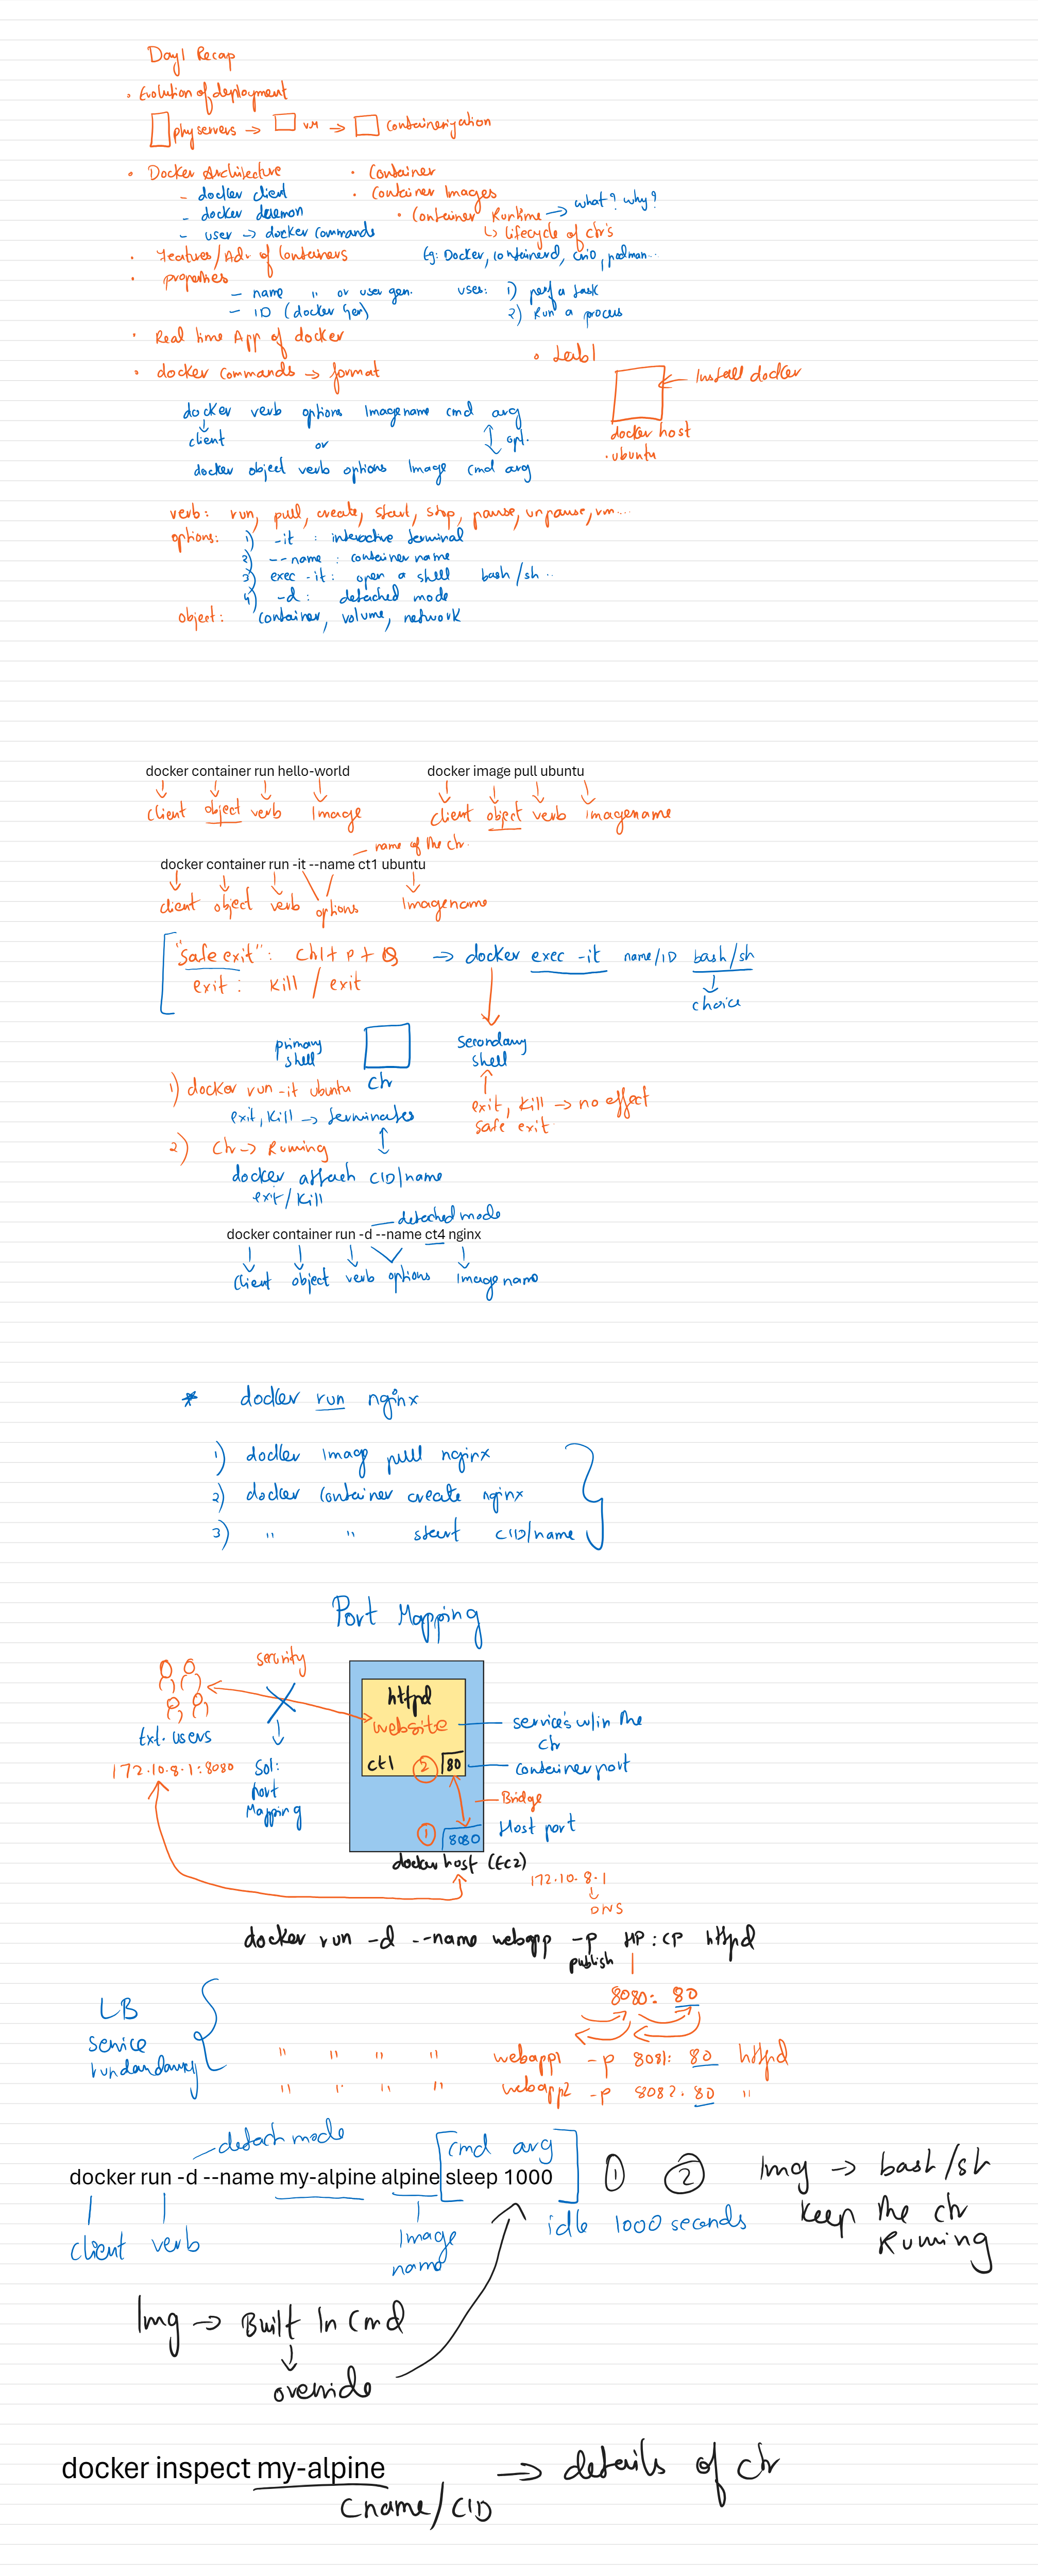 Day1 Recap
• Evolution of deployment
phy servers → VM → Containerization
• Docker Architecture
- docker client
- docker daemon
- user → docker commands
• Container
• Container Images
• Container Runtime → what? why?
↳ lifecycle of ctr's
Eg: Docker, containerd, crio, podman...
• Features/Adv. of Containers
• properties
- name " or user gen.
- ID (docker Gen)
uses: 1) perf a task
2) Run a process
• Real time App of docker
• docker commands → format
• Lab1
Install docker
docker host
• ubuntu
docker verb options Imagename cmd arg
client
or
opt.
docker object verb options Image cmd arg
verb: run, pull, create, start, stop, pause, unpause, rm...
options: 1) -it : interactive terminal
2) --name : container name
3) exec -it : open a shell bash/sh ..
4) -d : detached mode
object: container, volume, network
docker container run hello-world
client object verb Image
docker image pull ubuntu
client object verb imagename
name of the ctr
docker container run -it --name ct1 ubuntu
client object verb options Imagename
"safe exit": Ctrl + P + Q → docker exec -it name/ID bash/sh
exit: kill / exit
choice
primary shell
ctr
Secondary shell
1) docker run -it ubuntu
exit, kill → terminates
exit, kill → no effect
safe exit
2) Ctr → Running
docker attach CID/name
exit/kill
detached mode
docker container run -d --name ct4 nginx
client object verb options Image name
* docker run nginx
1) docker image pull nginx
2) docker container create nginx
3) " " start CID/name
Port Mapping
security
httpd
website
ct1 2 80
Ext. users
172.10.8.1:8080
Sol:
Port
Mapping
services w/in the
ctr
container port
Bridge
1 8080
Host port
docker host (EC2)
172.10.8.1
DNS
docker run -d --name webapp -p HP:CP httpd
publish
8080: 80
LB
service
rundandancy
" " " " webapp1 -p 8081: 80 httpd
" " " " webapp2 -p 8082: 80 "
detach mode
[cmd arg]
docker run -d --name my-alpine alpine sleep 1000
client verb
Image
name
idle 1000 seconds
1 2
Img → bash/sh
keep the ctr
Running
Img → Built In Cmd
override
docker inspect my-alpine → details of ctr
Cname/CID